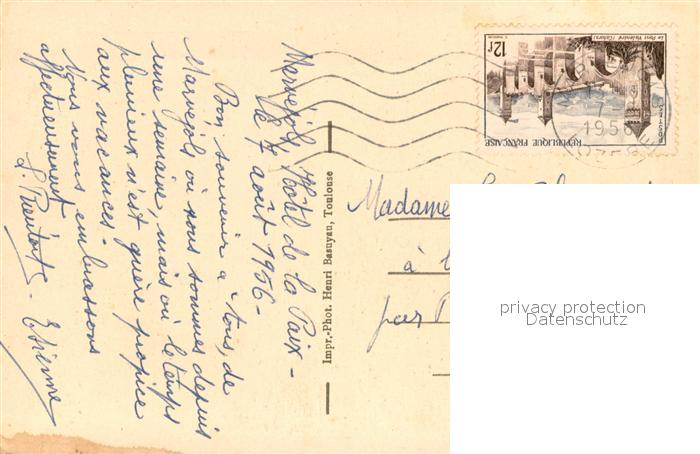 Marvejols, Hôtel de la Paix -
le 7 août 1956 -
Bon souvenir à tous, de
Marvejols où nous sommes depuis
une semaine, mais où le temps
pluvieux n'est guère propice
aux vacances -
Nous vous embrassons
affectueusement
Etienne
Impr.-Phot. Henri Basuyau, Toulouse
12F
Le Pont Valentré (Cahors)
RÉPUBLIQUE FRANÇAISE
POSTES
1956
Madame
à
par
privacy protection
Datenschutz